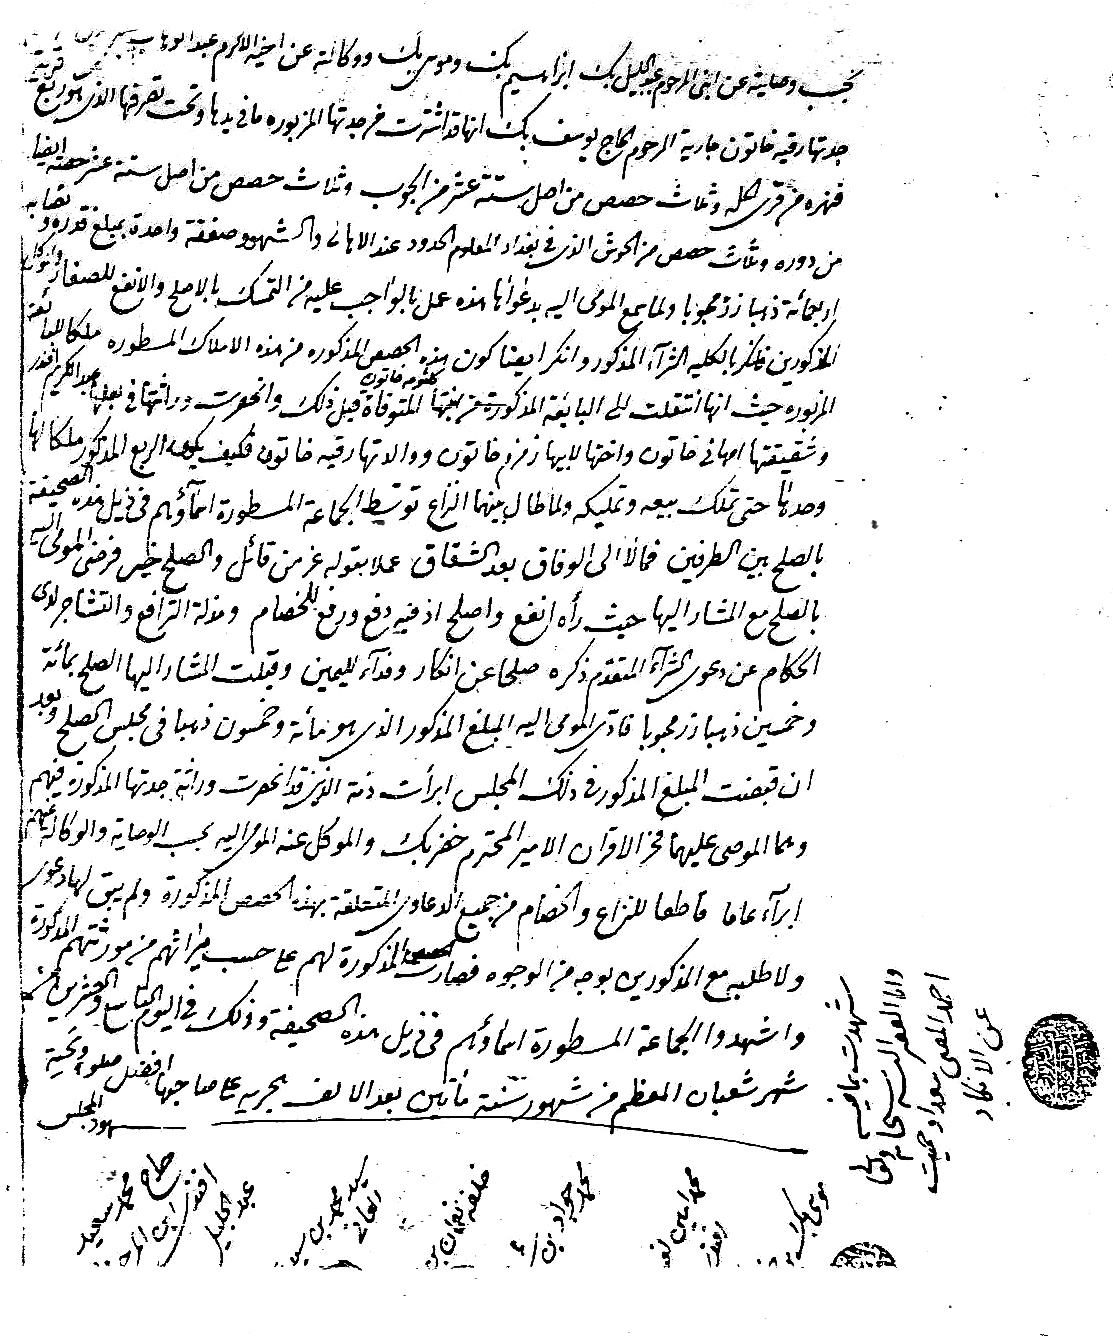 بحسب وصايته عن ابني المرحوم عبد الجليل بك ابراهيم بك وموسى بك ووكالته عن اخيه الاكرم عبد الوهاب
جدتها رقيه خاتون جارية المرحوم الحاج يوسف بك انها قد اشترت من جدتها المزبوره ما في يدها وتحت تصرفها الذي هو ربع قرية
من قرى الحله وثلاث حصص من اصل ستة عشر من الجوب وثلاث حصص من اصل ستة عشر حصة ايضا
من دوره وثلاث حصص من الحوش الذي في بغداد المعلوم الحدود عند الاهالي والشهود صفقة واحدة بمبلغ قدره
اربعمائة ذهبا زر محبوبا ولما سمع المومى اليه بدعواها هذه عمل بالواجب عليه من التمسك بالاصلح والانفع للصغار
المذكورين فانكر بالكليه الشرآء المذكور وانكر ايضا كون هذه الحصص المذكوره من هذه الاملاك المسطوره ملكا للبائعة
المزبوره حيث انها انتقلت الى البائعة المذكورة من بنتها كلثومه خاتون المتوفاة قبل ذلك وانحصرت وراثتها في بعلها عبد الكريم افندي
وشقيقتها امهاني خاتون واختها لابيها زمزم خاتون ووالدتها رقيه خاتون فكيف يكون الربع المذكور ملكا لها
وحدها حتى تملك بيعه وتمليكه ولما طال بينهما النزاع توسط الجماعة المسطورة اسمآؤهم في ذيل هذه الصحيفة
بالصلح بين الطرفين فمالا الى الوفاق بعد الشقاق عملا بقوله عز من قائل والصلح خير فرضي المومى اليه
بالصلح مع المشار اليها حيث رأه انفع واصلح اذ فيه دفع ورفع للخصام ومذلة الترافع والتشاجر لدى
الحكام عن دعوى الشرآء المتقدم ذكره صلحا عن انكار وفدآء لليمين وقبلت المشار اليها الصلح بمائة
وخمسين ذهبا زر محبوبا فادى المومى اليه المبلغ المذكور الذي هو مائة وخمسون ذهبا في مجلس الصلح وبعد
ان قبضت المبلغ المذكور في ذلك المجلس ابرأت ذمة الذين قد انحصرت وراثة جدتها المذكورة فيهم
وهما الموصى عليهما فخر الاقران الامير المحترم خضر بك والموكل عنه المومى اليه بحسب الوصاية والوكالة عنهم
ابرآء عاما قاطعا للنزاع والخصام من جميع الدعاوى المتعلقة بهذه الحصص المذكورة ولم يبق لها دعوى
ولا طلب مع المذكورين بوجه من الوجوه فصارت الحصص المذكورة لهم على حسب ميراثهم من مورثتهم المذكورة
واشهدوا الجماعة المسطورة اسماؤهم في ذيل هذه الصحيفة وذلك في اليوم التاسع والعشرين
شهر شعبان المعظم من شهور سنة مأتين بعد الالف هجريه على صاحبها افضل صلوة وتحية
شهود المجلس
شهدت بما فيه
وانا الفقير اليه سبحانه وتعالى
احمد المفتي ببغداد
عن الانكار
موسى بك
محمد امين
افندي
محمد جواد بن
خلفه
سيد محمد بن
العاني
عبد الجليل
افندي ابن
حاج محمد سعيد